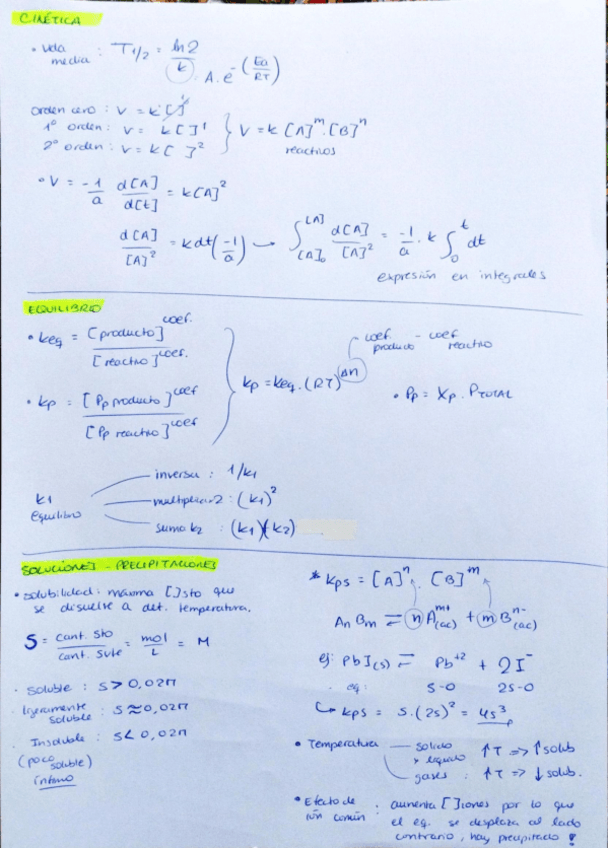 CINÉTICA
• Vida media : T1/2 = ln2 / k
A. e^-(Ea/RT)
orden cero : V = k[ ]
1º orden : V = k[ ]^1
2º orden : V = k[ ]^2
V = k [A]^m . [B]^n
reactivos
• V = -1/a d[A]/d[t] = k[A]^2
d[A]/[A]^2 = k dt(-1/a) → ∫_[A]0^[A] d[A]/[A]^2 = -1/a . k ∫_0^t dt
expresión en integrales
EQUILIBRIO
• keq = [producto]^coef. / [reactivo]^coef.
• kp = [Pp producto]^coef / [Pp reactivo]^coef
kp = keq . (RT)^Δn
coef producto - coef reactivo
• Pp = Xp . PTOTAL
k1 equilibrio
inversa : 1/k1
multiplicar 2 : (k1)^2
suma k2 : (k1)(k2)
SOLUCIONES - PRECIPITACIONES
• solubilidad : máxima [ ]sto que
se disuelve a det. temperatura.
S = cant. sto / cant. svte = mol / L = M
· Soluble : S > 0,02M
· ligeramente soluble : S ≈ 0,02M
· Insoluble : S < 0,02M
(poco soluble)
ínfimo
* Kps = [A]^n . [B]^m
An Bm ⇌ n A^m+ (ac) + m B^n- (ac)
ej: PbI(s) ⇌ Pb^+2 + 2I^-
eq: S-0 2S-0
↳ kps = S.(2S)^2 = 4S^3
• Temperatura
solido y liquido ↑T => ↑solub
gases : ↑T => ↓solub.
• Efecto de ión común : aumenta [ ]iones por lo que
el eq. se desplaza al lado
contrario, hay precipitado !